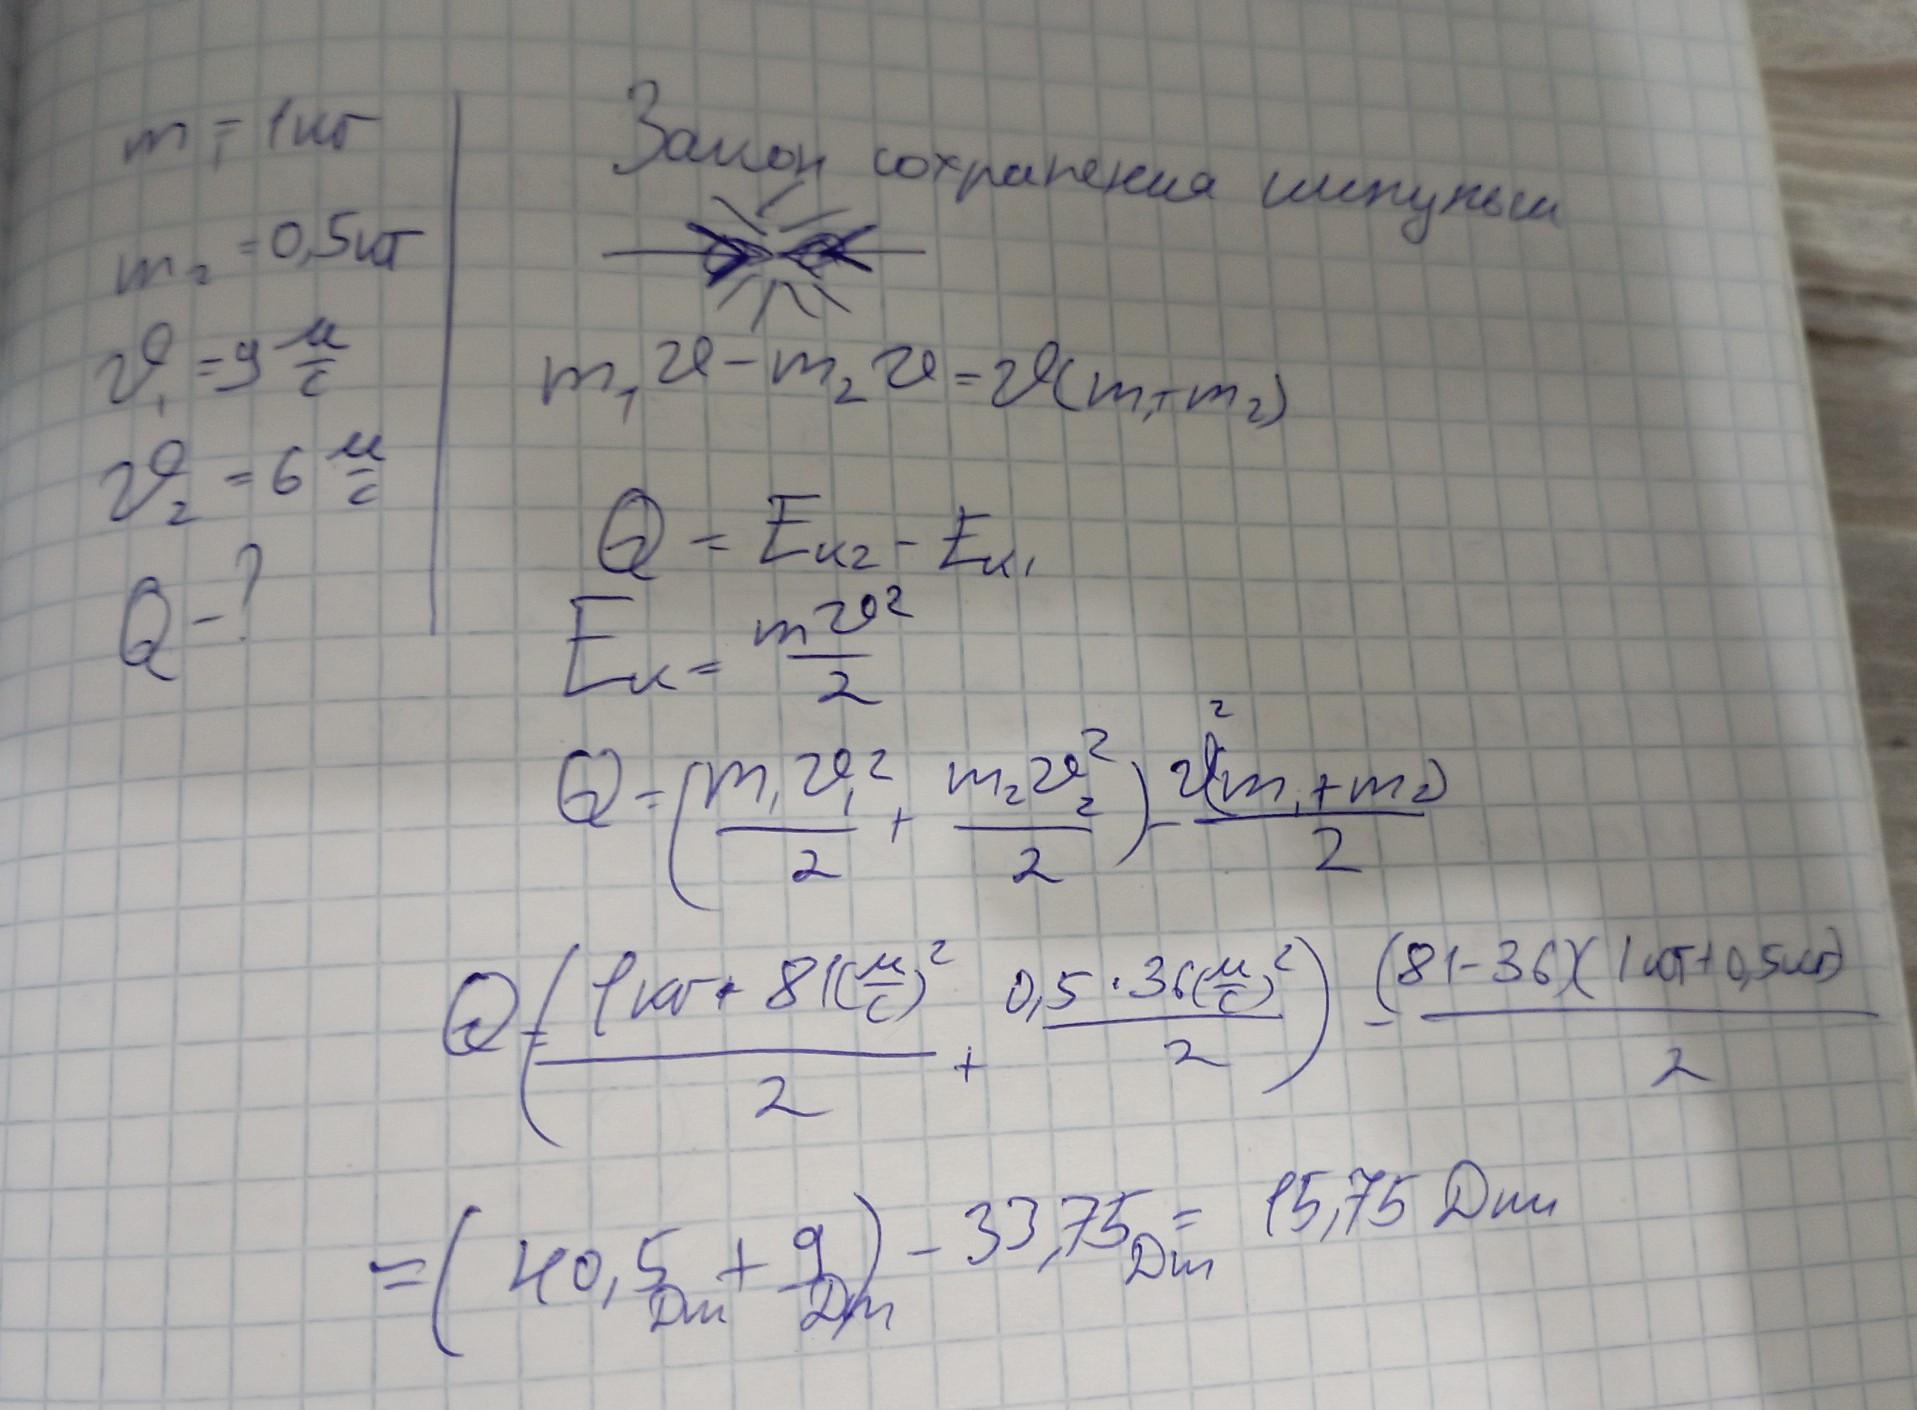 m₁ = 1кг
m₂ = 0,5кг
υ₁ = 9 м/с
υ₂ = 6 м/с
Q - ?
Закон сохранения импульса
m₁υ - m₂υ = υ(m₁+m₂)
Q = Eк₂ - Eк₁
Eк = mυ²/2
Q = (m₁υ₁²/2 + m₂υ₂²/2) - υ²(m₁+m₂)/2
Q = (1кг · 81(м/с)²/2 + 0,5 · 36(м/с)²/2) - (81-36)(1кг+0,5кг)/2
= (40,5 Дж + 9 Дж) - 33,75 Дж = 15,75 Дж